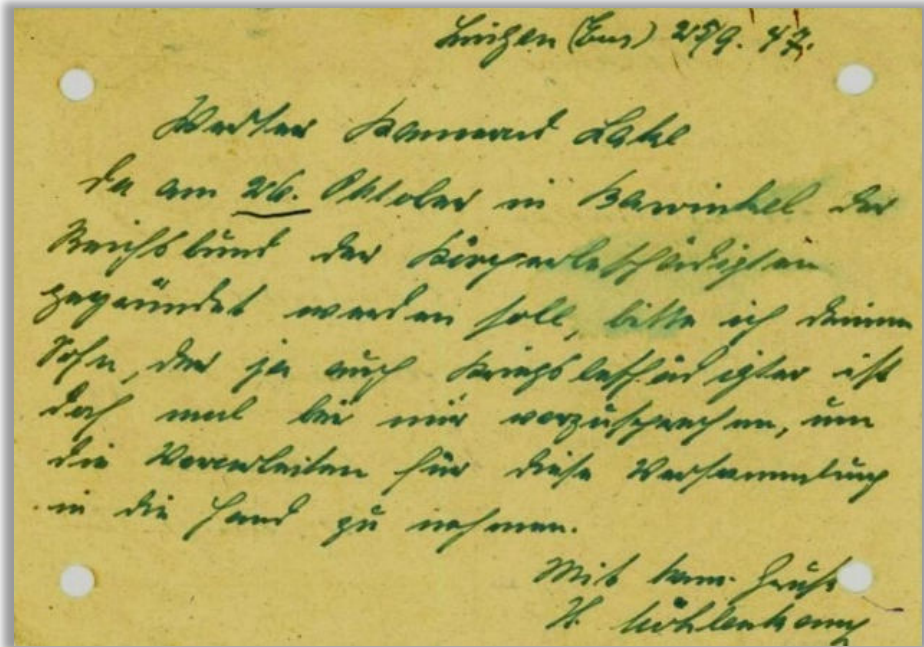 Lingen (Ems) 25/9. 47.
Werter Kamerad Lakl
Da am 26. Oktober in Bawinkel der
Reichsbund der Körperbeschädigten
gegründet werden soll, bitte ich deinen
Sohn, der ja auch Kriegsbeschädigter ist
doch mal bei mir vorzusprechen, um
die Vorarbeiten für diese Versammlung
in die Hand zu nehmen.
Mit kam. Gruß
H. Möhlenkamp